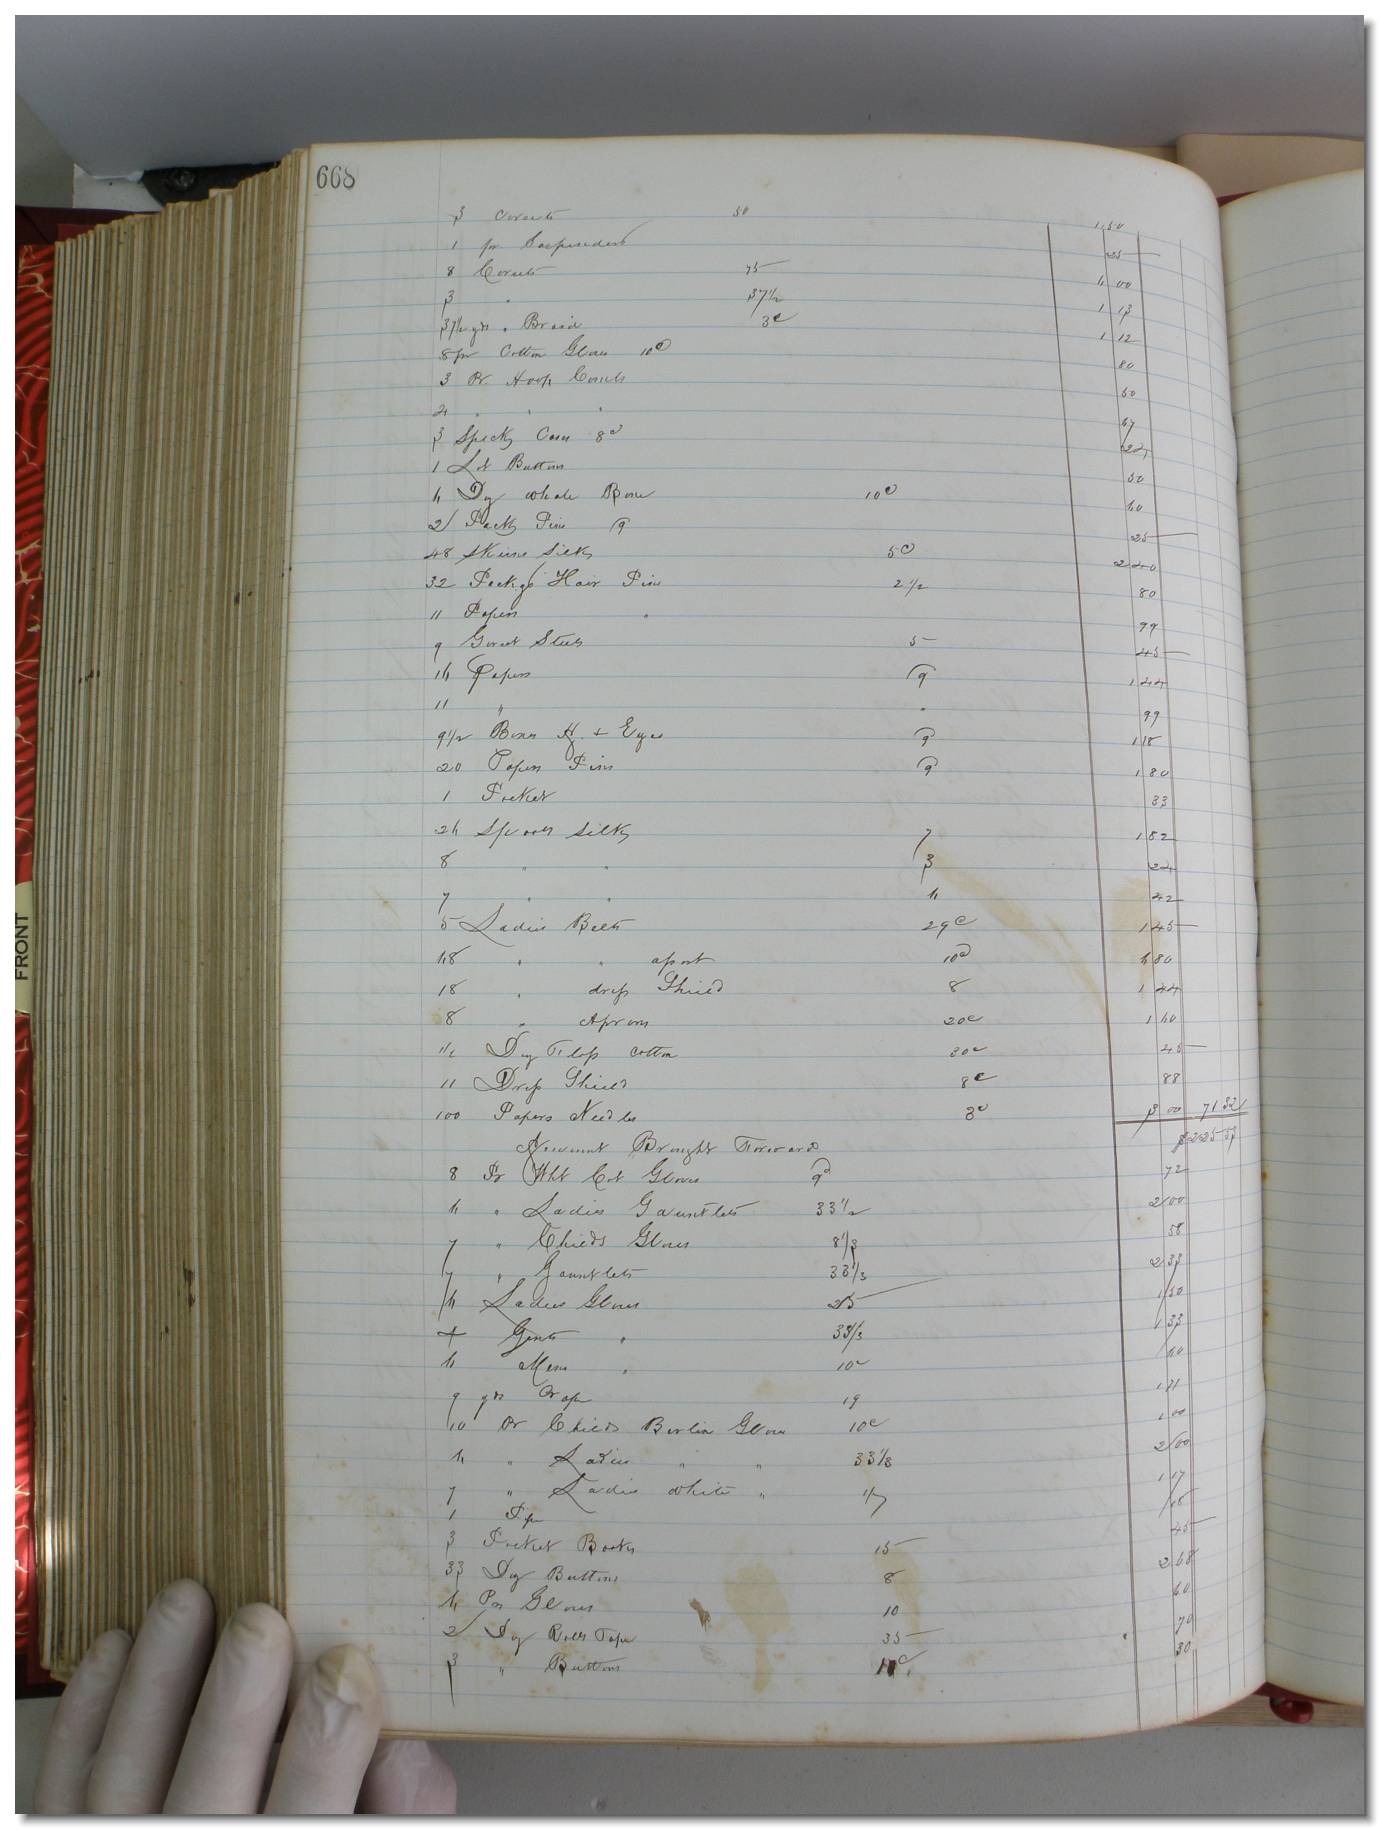 668
3 Corsets 50 1 50
1 pr Suspenders 25
8 Corsets 75 6 00
3 " 37 1/2 1 13
37 1/2 yds " Braid 3c 1 12
8 pr Cotton Gloves 10c 80
3 Pr Hoop Combs 50
4 " " " 67
3 Specks Cases 8c 24
1 Lot Buttons 50
6 Dz whale Bone 10c 60
2 Packs Pins 25
48 Skeins Silks 5c 2 40
32 Packgs Hair Pins 2 1/2 80
11 Papers " 99
9 Corset Steels 5 45
16 Papers 9 1 44
11 " " 99
9 1/2 Boxes H. & Eyes 9
20 Papers Pins 9 1 80
1 Pocket 33
26 Spools Silks 7 1 82
8 " " 3 24
7 " " 6 42
5 Ladies Belts 29c 1 45
68 " " apart 10c 6 80
18 " drip Shield 8 1 44
8 " Aprons 20c 1 60
1 1/2 Dz Flop cotton 30c 45
11 Drip Shield 8c 88
100 Papers Needles 3c 3 00 71 32
Amount Brought Forward
8 Pr Wht Cot Gloves 9c 72
6 " Ladies Gauntlets 33 1/2 2 00
7 " Childs Gloves 8 1/3 58
7 " Gauntlets 33 1/3 2 33
6 Ladies Gloves 25 1 50
4 Gents " 33 1/3 1 33
6 Mens " 10c 60
9 yds Crape 19 1 71
10 Pr Childs Berlin Gloves 10c 1 00
6 " Ladies " " 33 1/3 2 00
7 " Ladies white " 1 17
1 15
3 Pocket Books 15 45
33 Dz Buttons 8 2 68
6 Prs Gloves 10 60
2 Dz Rolls Tape 35 70
3 " Buttons 10c 30